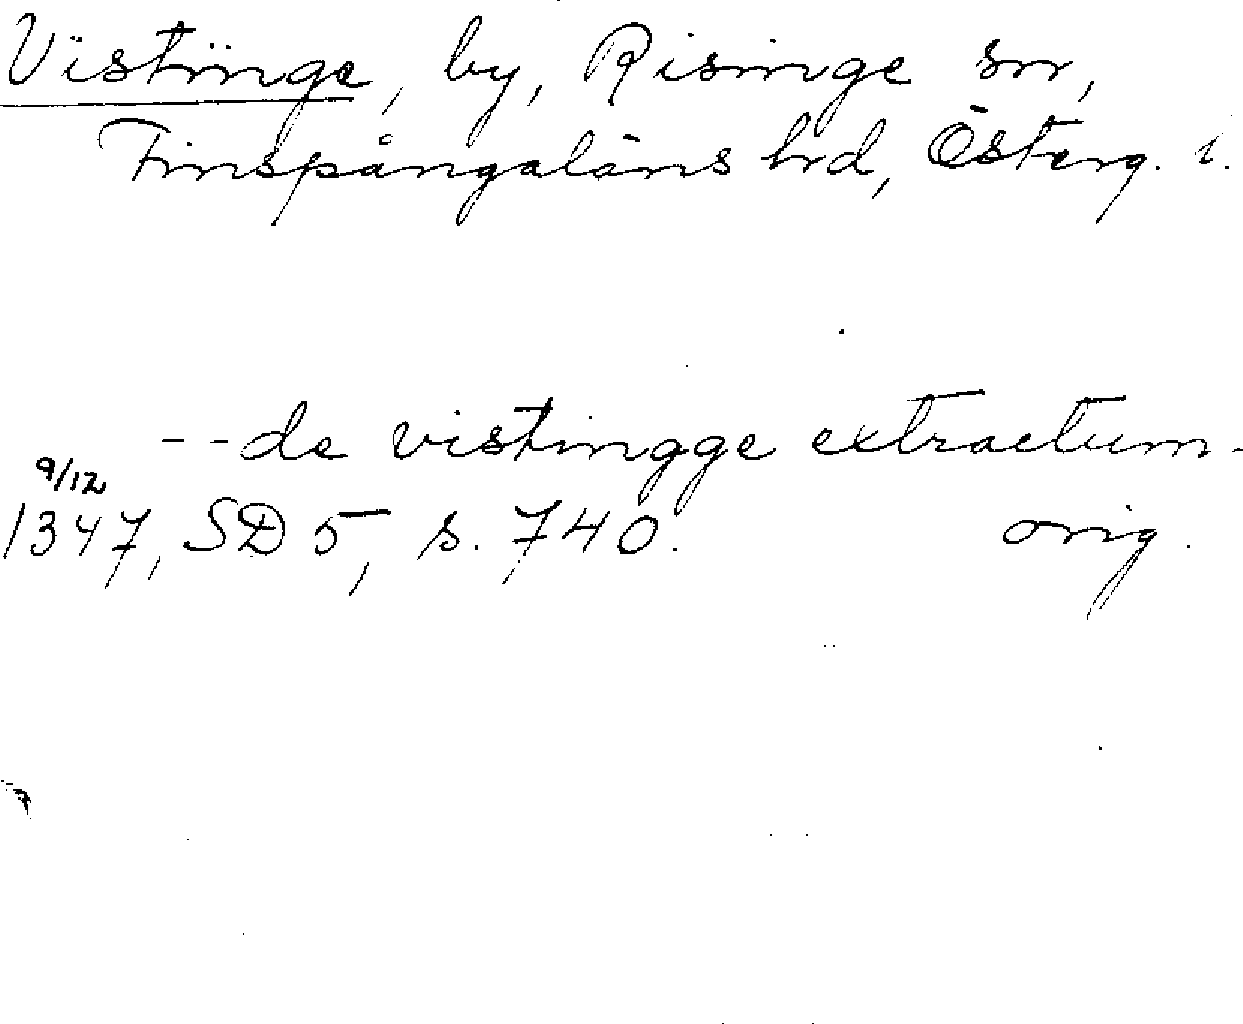 Vistinge, by, Risinge sn,
Finspångaläns hrd, Österg. l.
--de vistingge extractum-
9/12
1347, SD 5, s. 740. orig.